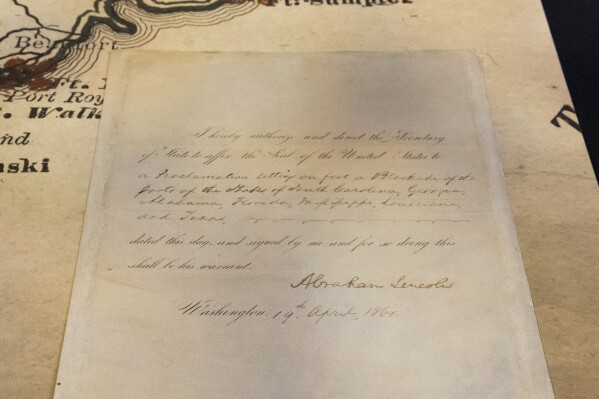 Ft. Sumpter
Beaufort
Ft.
Port Roy
t. Walk
nd
nski
I hereby authorize and direct the Secretary
of State to affix the Seal of the United States to
a Proclamation setting on foot a Blockade of the
Ports of the States of South Carolina, Georgia,
Alabama, Florida, Mississippi, Louisiana,
and Texas,
dated this day, and signed by me and for so doing this
shall be his warrant.
Abraham Lincoln
Washington, 19th April, 1861.